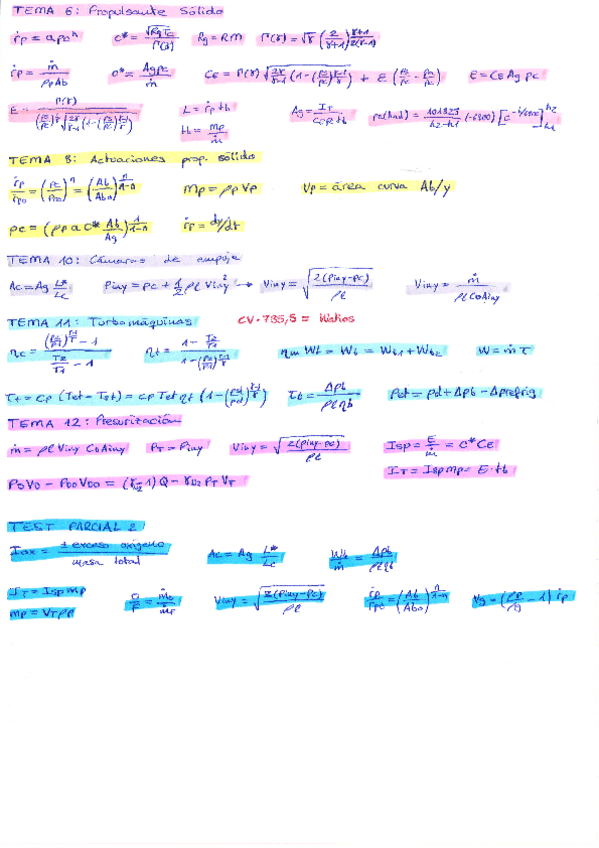 TEMA 6: Propulsante Sólido
ṙp = a pc^n   c* = √(Rg Tc) / Γ(γ)   Rg = R/M   Γ(γ) = √γ (2/(γ+1))^((γ+1)/(2(γ-1)))
ṙp = ṁ / (ρp Ab)   c* = Ag pc / ṁ   CE = Γ(γ) √(2γ/(γ-1) (1-(ps/pc)^((γ-1)/γ))) + ε (ps/pc - pa/pc)   E = CE Ag pc
ε = Γ(γ) / ((ps/pc)^(1/γ) √(2γ/(γ-1) (1-(ps/pc)^((γ-1)/γ))))   L = ṙp tb   Ag =
tb = mp / ṁ
TEMA 8: Actuaciones prop. sólido
ṙp/ṙp0 = (pc/pc0)^n = (Ab/Ab0)^(n/(1-n))   Mp = ρp Vp   Vp = área curva Ab/y
pc = (ρp a c* Ab/Ag)^(1/(1-n))   ṙp = dy/dt
TEMA 10: Cámaras de empuje
Ac = Ag L*/Lc   Piny = pc + 1/2 ρl Viny² → Viny = √(2(Piny-pc)/ρl)   Viny = ṁ / (ρl CD Ainy)
TEMA 11: Turbomáquinas   CV · 735,5 = Watios
ηc = ((p2/p1)^((γ-1)/γ) - 1) / (T2/T1 - 1)   ηt = (1 - T2/T1) / (1-(p2/p1)^((γ-1)/γ))   ηm Wt = Wb = Wb1 + Wb2   W = ṁ τ
τt = cp (Tet - Tst) = cp Tet ηt (1-(pst/pet)^((γ-1)/γ))   τb = Δpb / (ρl ηb)   Pdt = pd + Δpb - Δprefrig
TEMA 12: Presurización
ṁ = ρl Viny CD Ainy   PT = Piny   Viny = √(2(piny-pc)/ρl)   Isp = E/ṁ = c* CE
IT = Isp mp = E · tb
P0 V0 - P00 V00 = (γ-1) Q - γ PT VT
TEST PARCIAL 2
Iox = ± exceso oxígeno / masa total   Ac = Ag L*/Lc   Wb/ṁ = Δpb / (ρl ηb)
IT = Isp mp
mp = VT ρp   O/F = ṁo/ṁF   Viny = √(2(Piny-pc)/ρl)   ṙp/ṙp0 = (Ab/Ab0)^(n/(1-n))   Vg = (ρp/ρg - 1) ṙp